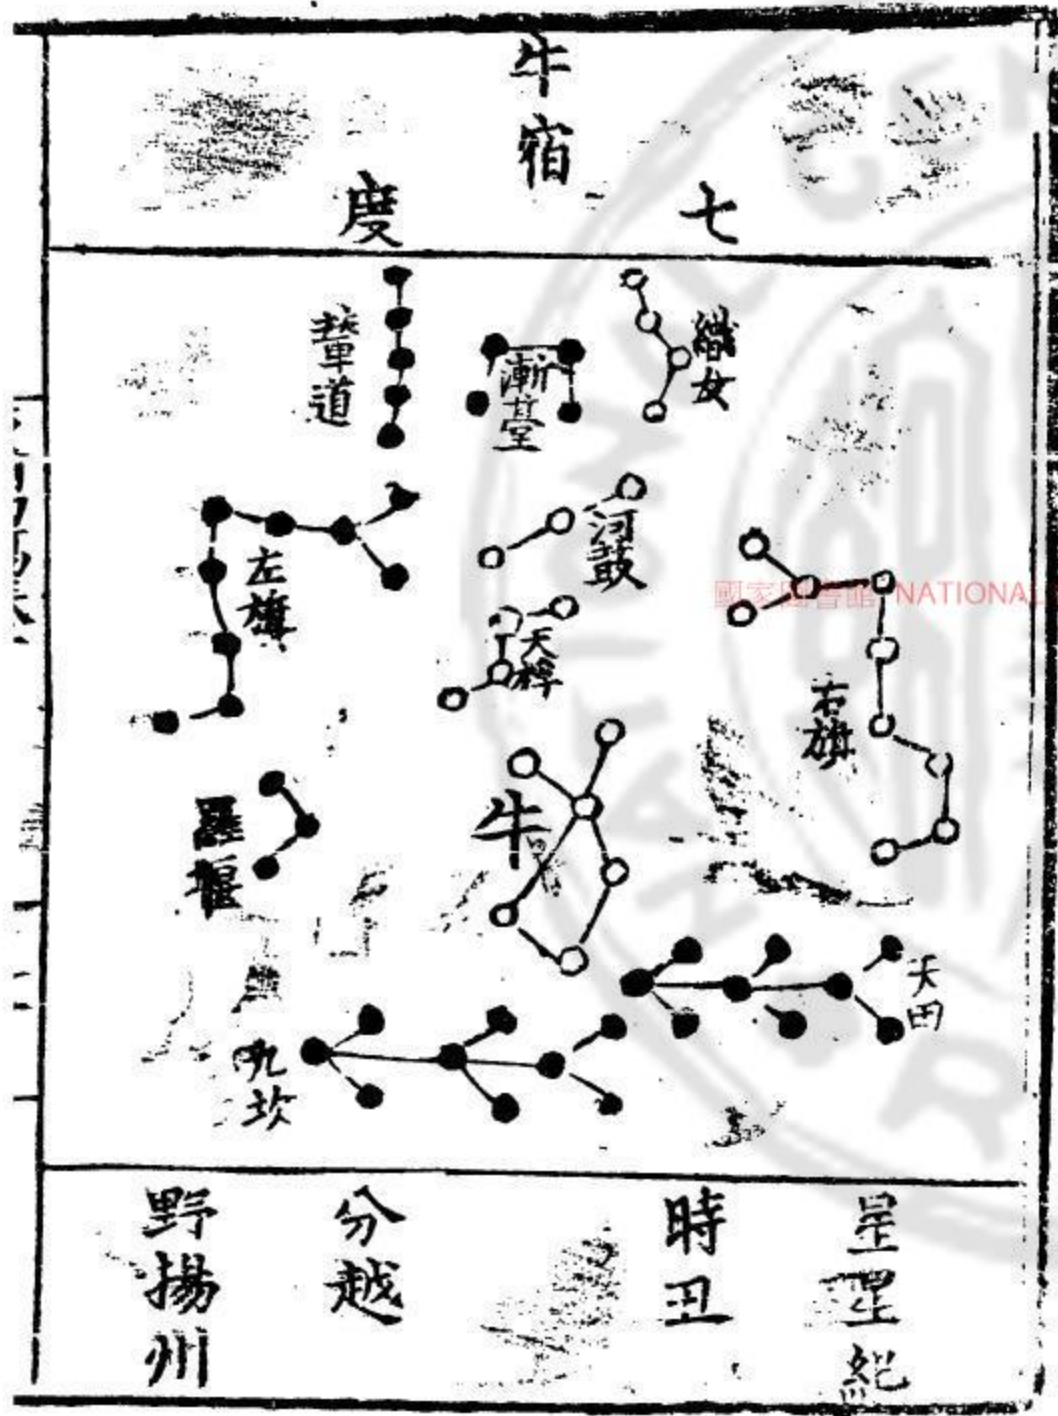 牛宿
七
度
織女
漸臺
輦道
河鼓
左旗
天桴
右旗
牛
羅堰
天田
九坎
星紀
時丑
分越
野揚州
國家圖書館 NATIONAL